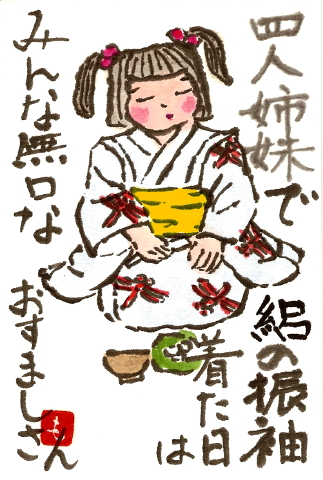 四人姉妹で
絽の振袖
着た日は
みんな無口な
おすましさん